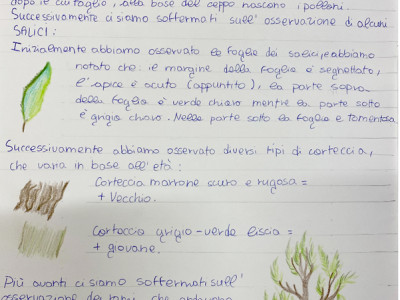 dopo il taglio, alla base del ceppo nascono i polloni.
Successivamente ci siamo soffermati sull'osservazione di alcuni
SALICI:
Inizialmente abbiamo osservato le foglie dei salici, e abbiamo
notato che: il margine della foglia è segnettato,
l'apice è acuto (appuntito), la parte sopra
della foglia è verde chiaro mentre la parte sotto
è grigio chiaro. Nella parte sotto la foglia è tomentosa.
Successivamente abbiamo osservato diversi tipi di corteccia,
che varia in base all'età:
Corteccia marrone scuro e rugosa =
+ vecchio.
Corteccia grigio-verde liscia =
+ giovane.
Più avanti ci siamo soffermati sull'
osservazione dei rami che